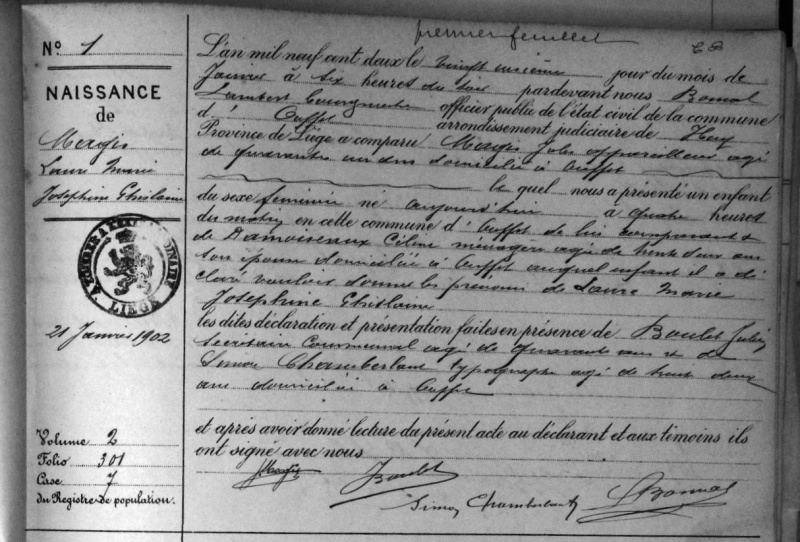 premier feuillet
N° 1
NAISSANCE
de
Margis
Laure Marie
Joséphine Ghislaine
LIÈGE
21 Janvier 1902
Volume 2
Folio 301
Case 7
du Registre de population.
L'an mil neuf cent deux le vingt unième jour du mois de
Janvier à six heures du soir pardevant nous Bomal
Lambert Bourgmestre officier public de l'état civil de la commune
d' Ouffet arrondissement judiciaire de Huy
Province de Liège a comparu Margis Jules appareilleur agé
de quarante un ans domicilié à Ouffet
le quel nous a présenté un enfant
du sexe féminin né aujourd'hui à quatre heures
du matin en cette commune d' Ouffet de lui comparant &
de Damoiseaux Céline ménagère agée de trente deux ans
son épouse domiciliée à Ouffet auquel enfant il a dé
claré vouloir donner les prénoms de Laure Marie
Joséphine Ghislaine
les dites déclaration et présentation faites en présence de Boulet Julien
Secrétaire Communal agé de quarante ans et de
Simon Chamberland typographe agé de trente deux
ans domiciliés à Ouffet
et après avoir donné lecture du présent acte au déclarant et aux témoins ils
ont signé avec nous
JMargis
Boulet
Simon Chamberland
LBomal